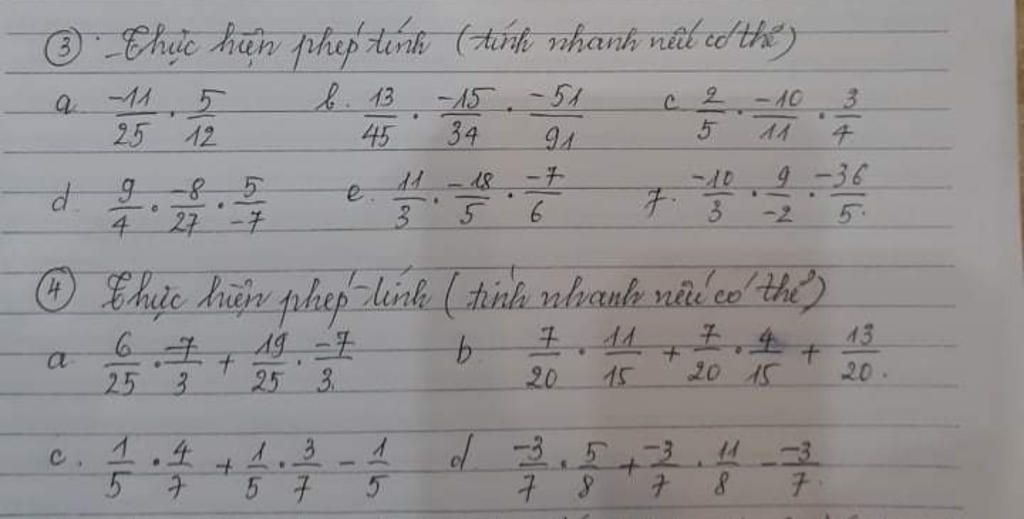 ③ Thực hiện phép tính (tính nhanh nếu có thể)
a. -11/25 . 5/12 b. 13/45 . -15/34 . -51/91 c. 2/5 . -10/11 . 3/4
d. 9/4 . -8/27 . 5/-7 e. 11/3 . -18/5 . -7/6 f. -10/3 . 9/-2 . -36/5.
④ Thực hiện phép tính (tính nhanh nếu có thể)
a. 6/25 . -7/3 + 19/25 . -7/3. b 7/20 . 11/15 + 7/20 . 4/15 + 13/20.
c. 1/5 . 4/7 + 1/5 . 3/7 - 1/5 d -3/7 . 5/8 + -3/7 . 11/8 - -3/7.